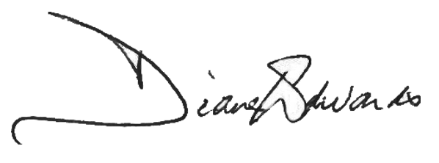 Diane Edwards